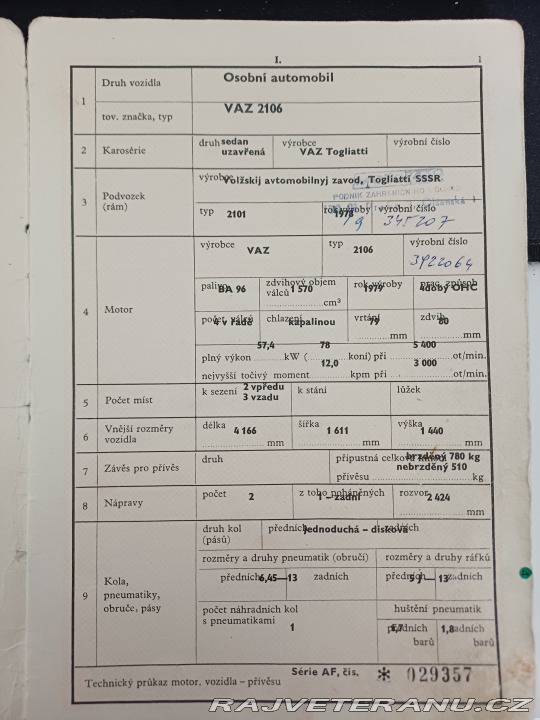 I. 1
1 Druh vozidla Osobní automobil
tov. značka, typ VAZ 2106
2 Karosérie druh sedan uzavřená výrobce VAZ Togliatti výrobní číslo
3 Podvozek (rám) výrobce Volžskij avtomobilnyj zavod, Togliatti SSSR
typ 2101 rok výroby výrobní číslo 345207
4 Motor výrobce VAZ typ 2106 výrobní číslo
palivo BA 96 zdvihový objem válců 1 570 cm³ rok výroby 1979 prac. způsob 4dobý OHC
počet válců 4 v řadě chlazení kapalinou vrtání 79 mm zdvih 80 mm
plný výkon 57,4 kW ( 78 koní) při 5 400 ot/min.
nejvyšší točivý moment 12,0 kpm při 3 000 ot/min.
5 Počet míst k sezení 2 vpředu 3 vzadu k stání lůžek
6 Vnější rozměry vozidla délka 4 166 mm šířka 1 611 mm výška 1 440 mm
7 Závěs pro přívěs druh přípustná celková brzděný 780 kg
přívěsu nebrzděný 510 kg
8 Nápravy počet 2 z toho poháněných 1 – zadní rozvor 2 424 mm
9 Kola, pneumatiky, obruče, pásy druh kol (pásů) předních Jednoduchá – disková zadních
rozměry a druhy pneumatik (obručí) rozměry a druhy ráfků
předních 6,45—13 zadních předních 5 J—13 zadních
počet náhradních kol s pneumatikami 1 huštění pneumatik
předních 1,7 barů zadních 1,8 barů
Technický průkaz motor. vozidla – přívěsu Série AF, čís. ✻ 029357
RAJVETERANU.CZ